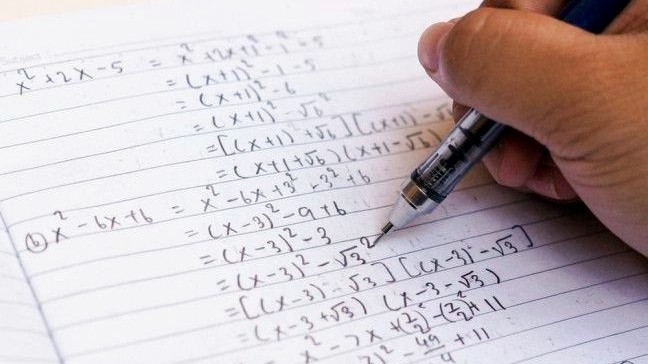 x² + 2x - 5 = x² + 2x + 1 - 1 - 5
= (x+1)² - 1 - 5
= (x+1)² - 6
= (x+1)² - √6²
= [(x+1) + √6] [(x+1) - √6
= (x+1+√6) (x+1-√6)
(b) x² - 6x + 6 = x² - 6x + 3² - 3² + 6
= (x-3)² - 9 + 6
= (x-3)² - 3
= (x-3)² - √3²
= [(x-3) √3] [(x-3) - √3]
= (x-3+√3) (x-3-√3)
x² - 7x + (7/2)² - (7/2)² + 11
)² - 49 + 11